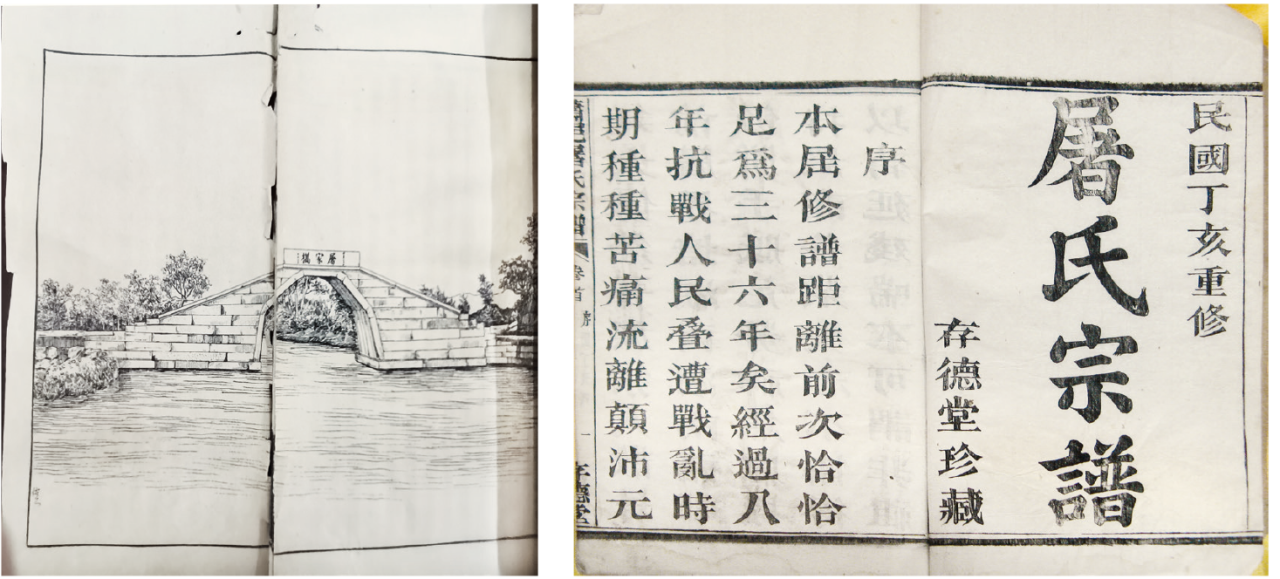 屠家橋
民國丁亥重修
屠氏宗譜
存德堂珍藏
序
本居修譜距離前次恰恰
足爲三十六年矣經過八
年抗戰人民叠遭戰亂時
期種種苦痛流離顛沛元
屠氏宗譜 卷首 一 存德堂